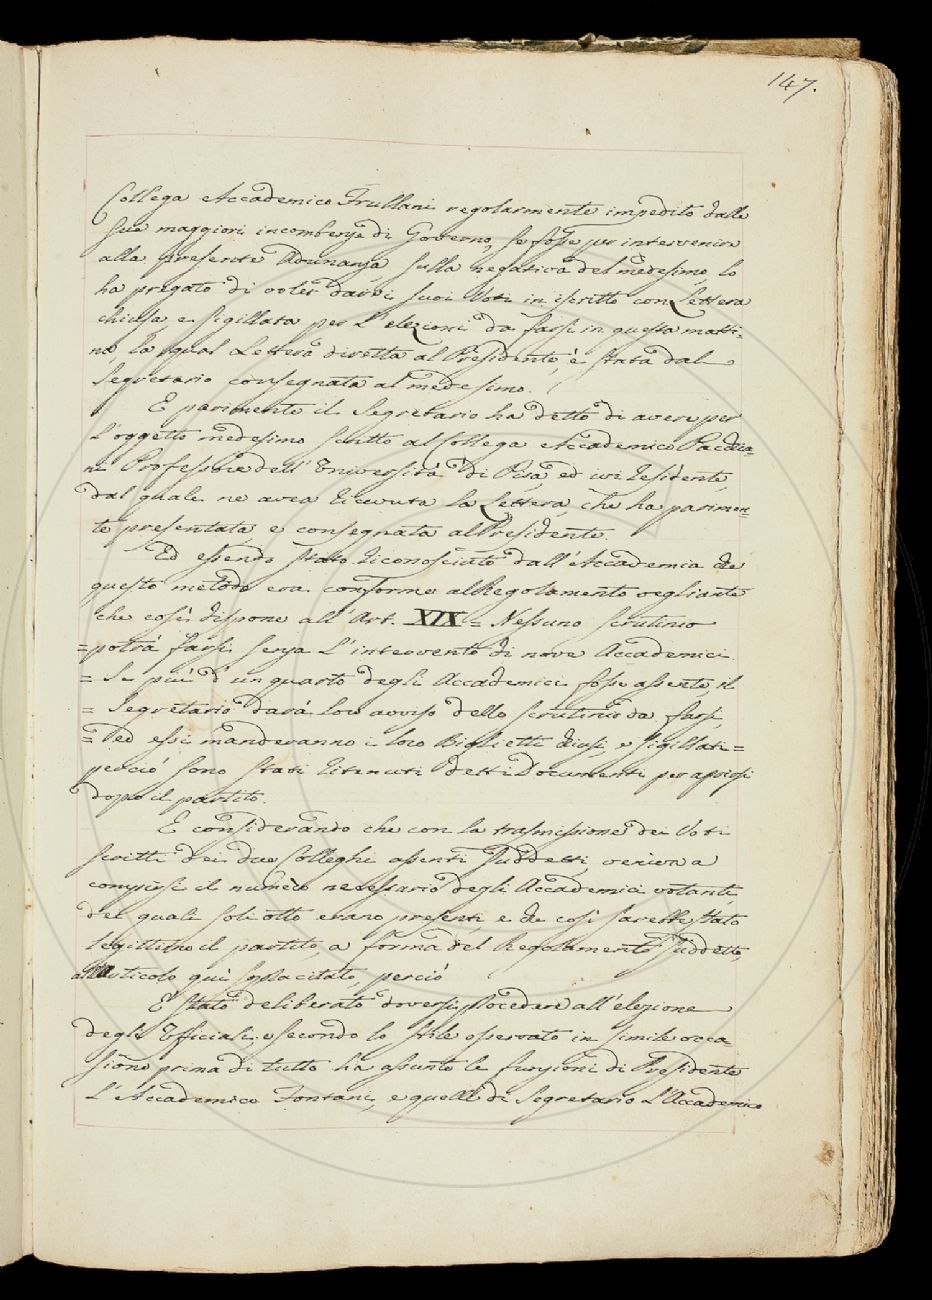 147.
Collega Accademico Frullani regolarmente impedito dalle
sue maggiori incombenze di Governo, se fosse per intervenire
alla presente Adunanza sulla negativa del medesimo, lo
ha pregato di voler dare i suoi Voti in iscritto con Lettera
chiusa e sigillata per l'elezioni da farsi in questa matti-
na, la qual Lettera diretta al Presidente, è stata dal
Segretario consegnata al medesimo.
E parimente il Segretario ha detto di avere per
l'oggetto medesimo scritto al Collega Accademico Pacchia-
ni Professore dell'Università di Pisa, ed ivi residente,
dal quale ne avea ricevuta la Lettera che ha parimen-
te presentata, e consegnata al Presidente.
Ed essendo stato riconosciuto dall'Accademia che
questo metodo era conforme al Regolamento vegliante
che così dispone all'Art. XIX = Nessuno scrutinio
= potrà farsi senza l'intervento di nove Accademici.
= Se più d'un quarto degli Accademici fosse assente, il
= Segretario darà loro avviso dello scrutinio da farsi,
= ed essi manderanno i loro Biglietti chiusi, e sigillati =
perciò sono stati ritenuti detti Documenti per aprirsi
dopo il partito.
E considerando che con la trasmissione dei Voti
scritti dei due Colleghi assenti suddetti veniva a
compirsi il numero necessario degli Accademici votanti,
dei quali soli otto erano presenti, e che così sarebbe stato
legittimo il partito, a forma del Regolamento suddetto,
all'Articolo quì sopra citato, perciò
È stato deliberato doversi procedere all'elezione
degli Officiali, e secondo lo stile osservato in simile occa
sione prima di tutto ha assunto le funzioni di Presidente
l'Accademico Fontani, e quelle di Segretario l'Accademico